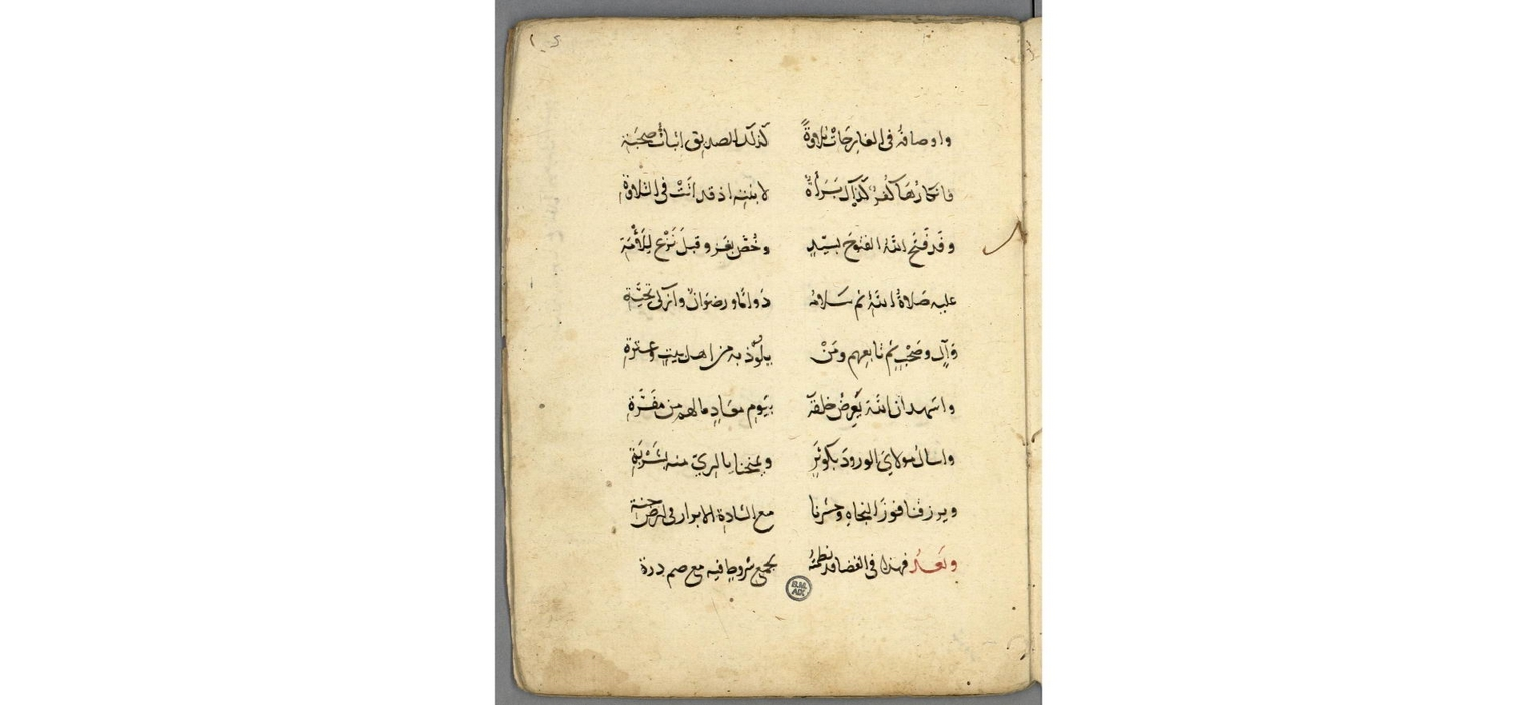 واوصافه في الغار جات تلاوةً كذلك الصديق اثبات صحبة
فانكارها كفر كذاك بَرَأة لابنته اذ قد اتت في التلاوة
وقد فتح اللهُ الفتوحَ بسيّدٍ وخُصّ بغزو قبل نزع لِلَأْمَة
عليه صلاة الله ثم سلامه دَوامًا ورضوان وازكى تحيّة
وَآلٍ وصَحْبٍ ثم تابعهم ومَنْ يلوذ به من اهل بيت وعترة
واشهد ان الله يَعرِض خلقه بيَوم معَادٍ ما لهم من مفَرّة
واسال مولاي الورودَ بكوثرٍ ويمنحنا بالريّ منه بشَرْبَةٍ
ويرزقنا فوزَ النجاةِ وحشرنا مع السادة الابرار في ارض جنة
وبَعدُ فهذا في القضا قد نظمتُه بجمع شروط فيه مع ضم درة